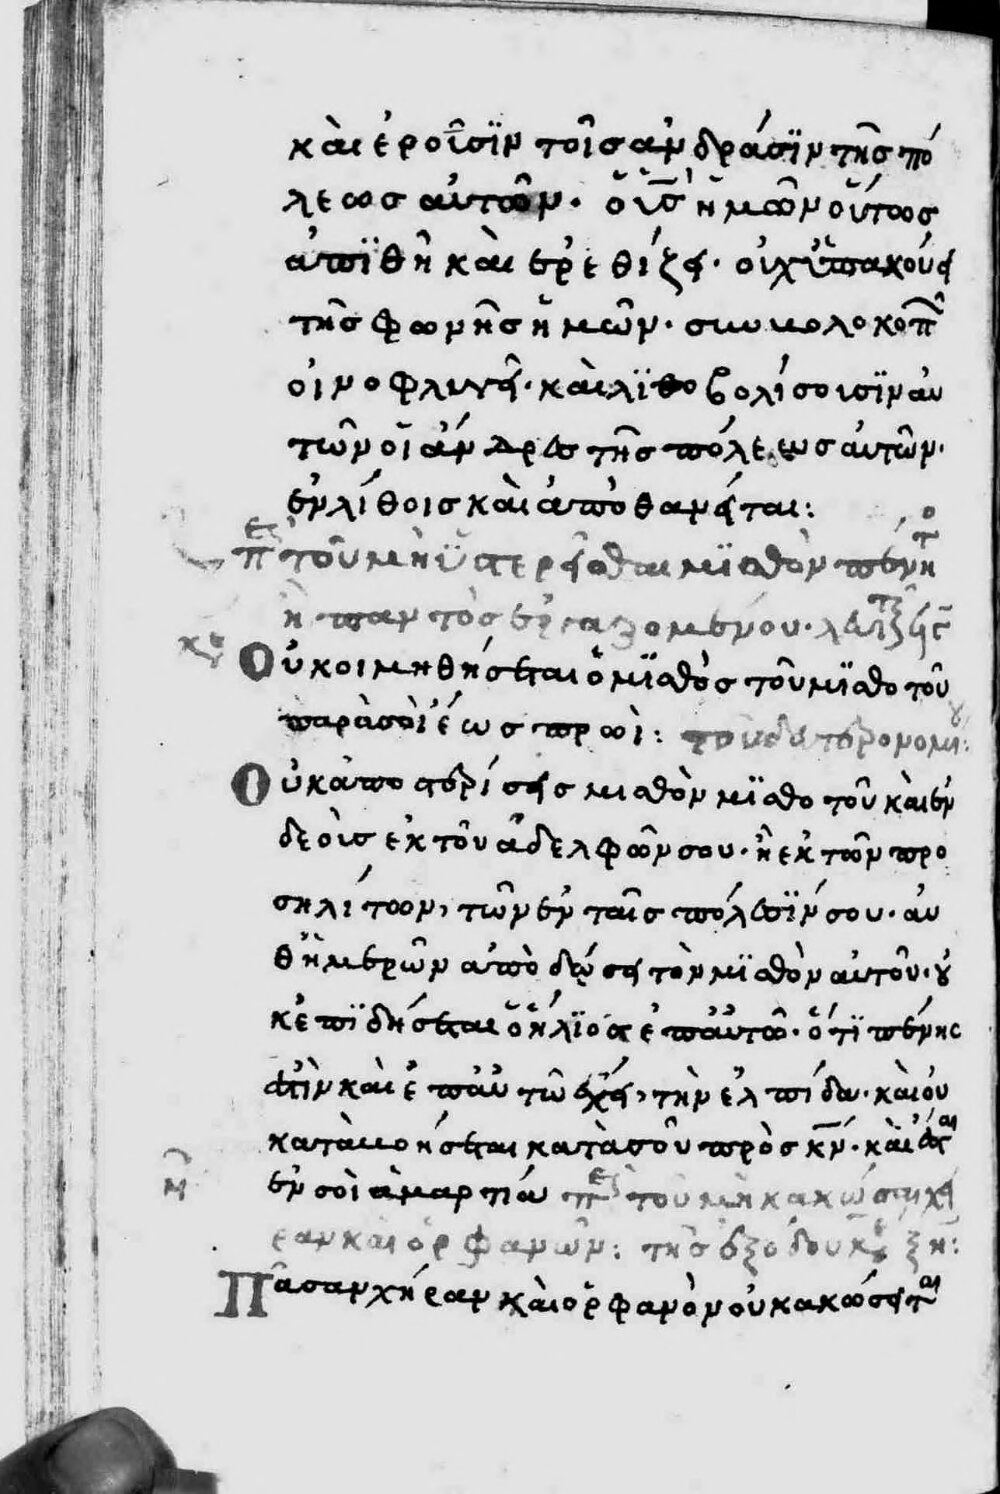 κὰι ἐροῦσϊν τοῖς ἀνδράσϊν τῆς πό
λεως αὐτῶν· ὁ ὑϊ̅ς ἡμῶν οὕτως
ἀπϊθῆ κὰι ἐρεθίζει· οὐχ ὑπακούει
τῆς φωνῆς ἡμῶν· συμϐολοκοπῆ
οἰνοφλυγεῖ· κὰι λϊθοϐολίσουσϊν αὐ
τῶν οἱ ἄνδρες τῆς πόλεως αὐτῶν·
ἐν λίθοις κὰι ἀποθανεῖται:
περὶ τοῦ μὴ ὑστερεῖσθαι μϊσθὸν πένητο
ἢ παντὸς ἐργαζομένου·
κε
Οὐ κοιμηθήσεται ὁ μϊσθὸς τοῦ μϊσθοτοῦ
παρὰ σοὶ ἕως πρωὶ: τοῦ δευτερονομίου:
Οὐκ ἀποστερίσεις μισθὸν μϊσθοτοῦ κὰι ἐν
δεοὶς ἐκ τῶν ἀδελφῶν σου· ἢ ἐκ τῶν προ
σηλίτων, τῶν ἐν ταῖς πόλεσϊν σου· αὐ
θημερῶν ἀποδώσει τὸν μϊσθὸν αὐτοῦ· οὐ
κ ἐπϊδήσεται ὁ ἥλϊος ἐπ αὐτῶ· ὅτϊ πένης
ἐστὶν κὰι ἐπ αὐτῶ ἔχει, τὴν ἐλπίδα· κὰι οὐ
καταϐοήσεται κατὰ σοῦ πρὸς κν̅· κὰι ἔσται
μ
ἐν σοὶ ἁμαρτία περὶ τοῦ μὴ κακώσιν χεί
ραν κὰι ὀρφανῶν: τῆς ἐξόδου κε ξη:
Πᾶσαν χήραν κὰι ὀρφανὸν οὐ κακώσεται